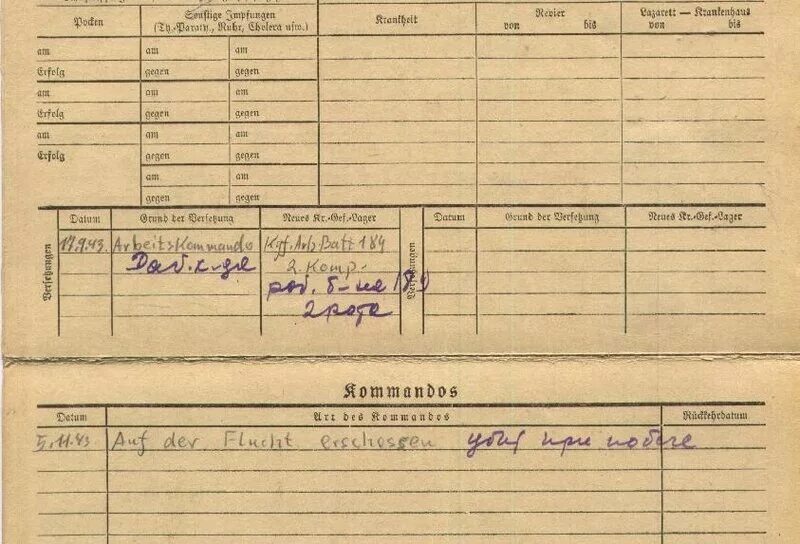 Pocken Sonstige Impfungen Krankheit Revier Lazarett — Krankenhaus
(Ty.-Paraty., Ruhr, Cholera usw.) von bis von bis
am am am
Erfolg gegen gegen
am am am
Erfolg gegen gegen
am am am
Erfolg gegen gegen
am am
gegen gegen
Versetzungen Datum Grund der Versetzung Neues Kr.-Gef.-Lager Versetzungen Datum Grund der Versetzung Neues Kr.-Gef.-Lager
17.9.43. Arbeitskommando Kgf. Arb. Batl 189
2. Komp.
раб. б-на 189
2 рота
Kommandos
Datum Art des Kommandos Rückkehrdatum
5.11.43. Auf der Flucht erschossen убит при побеге